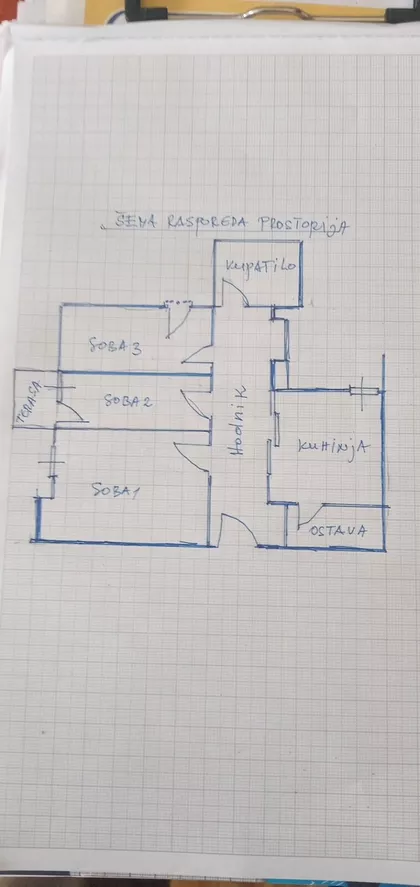 ŠEMA RASPOREDA PROSTORIJA
KUPATILO
SOBA 3
TERASA
SOBA 2
Hodnik
KUHINJA
SOBA 1
OSTAVA